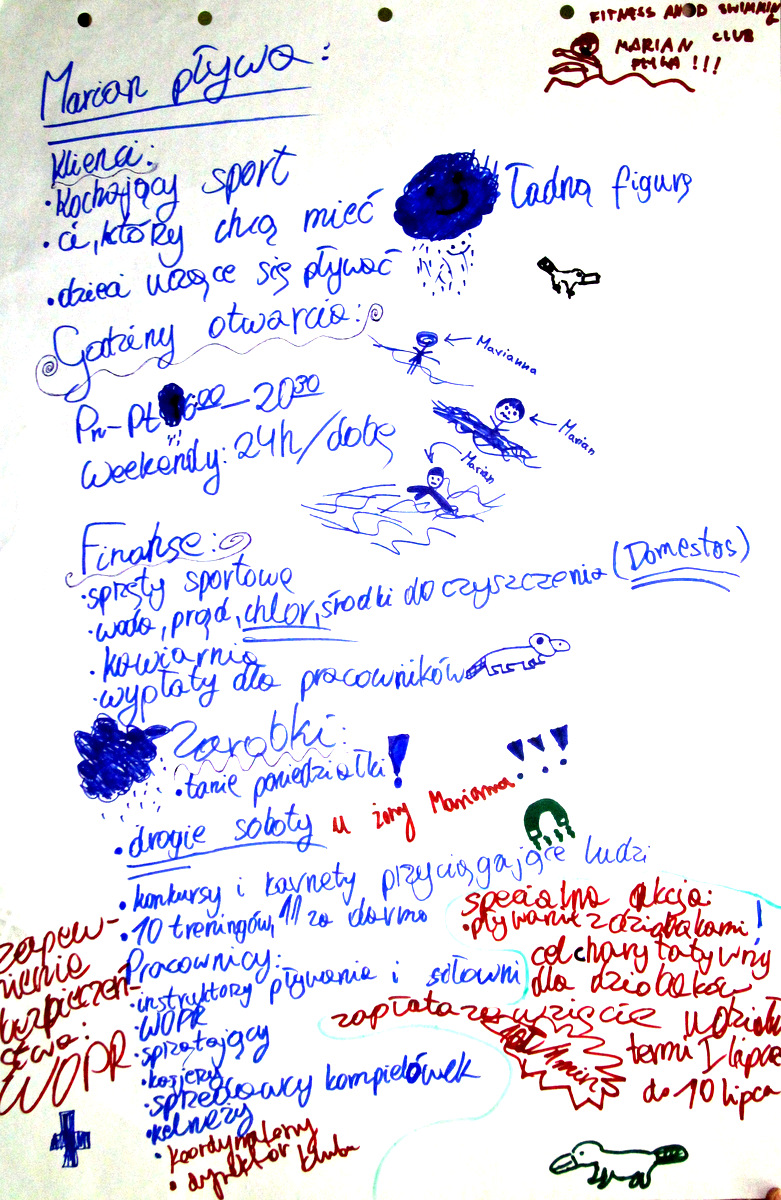 FITNESS AND SWIMMING
CLUB
MARIAN
PŁYWA!!!
Marian pływa:
Klienci:
• kochający sport
• ci, który chcą mieć ładną figurę
• dzieci uczące się pływać
Godziny otwarcia:
Marianna
Pn-Pt 6:00 - 20 30
Marian
Weekendy: 24h/dobę
Marian
Finanse:
• sprzęty sportowe
• woda, prąd, chlor, środki do czyszczenia (Domestos)
• kawiarnia
• wypłaty dla pracowników
Zarobki:
• tanie poniedziałki!
• drogie soboty u żony Mariana!!!
• konkursy i karnety przyciągające ludzi
• 10 treningów, 11 za darmo
specialna akcja:
• pływanie z dziobakami!
cel charytatywny
dla dziobaków
zapłata za wzięcie udziału
1 min
termi 1 lipca
do 10 lipca
Pracownicy:
• instruktorzy pływania i siłowni
• WOPR
• sprzątający
• kasjerzy
• sprzedawcy kompielówek
• kelnerzy
• koordynatorzy
• dyrektor klubu
zapew-
nienie
bezpieczeń-
stwa:
WOPR